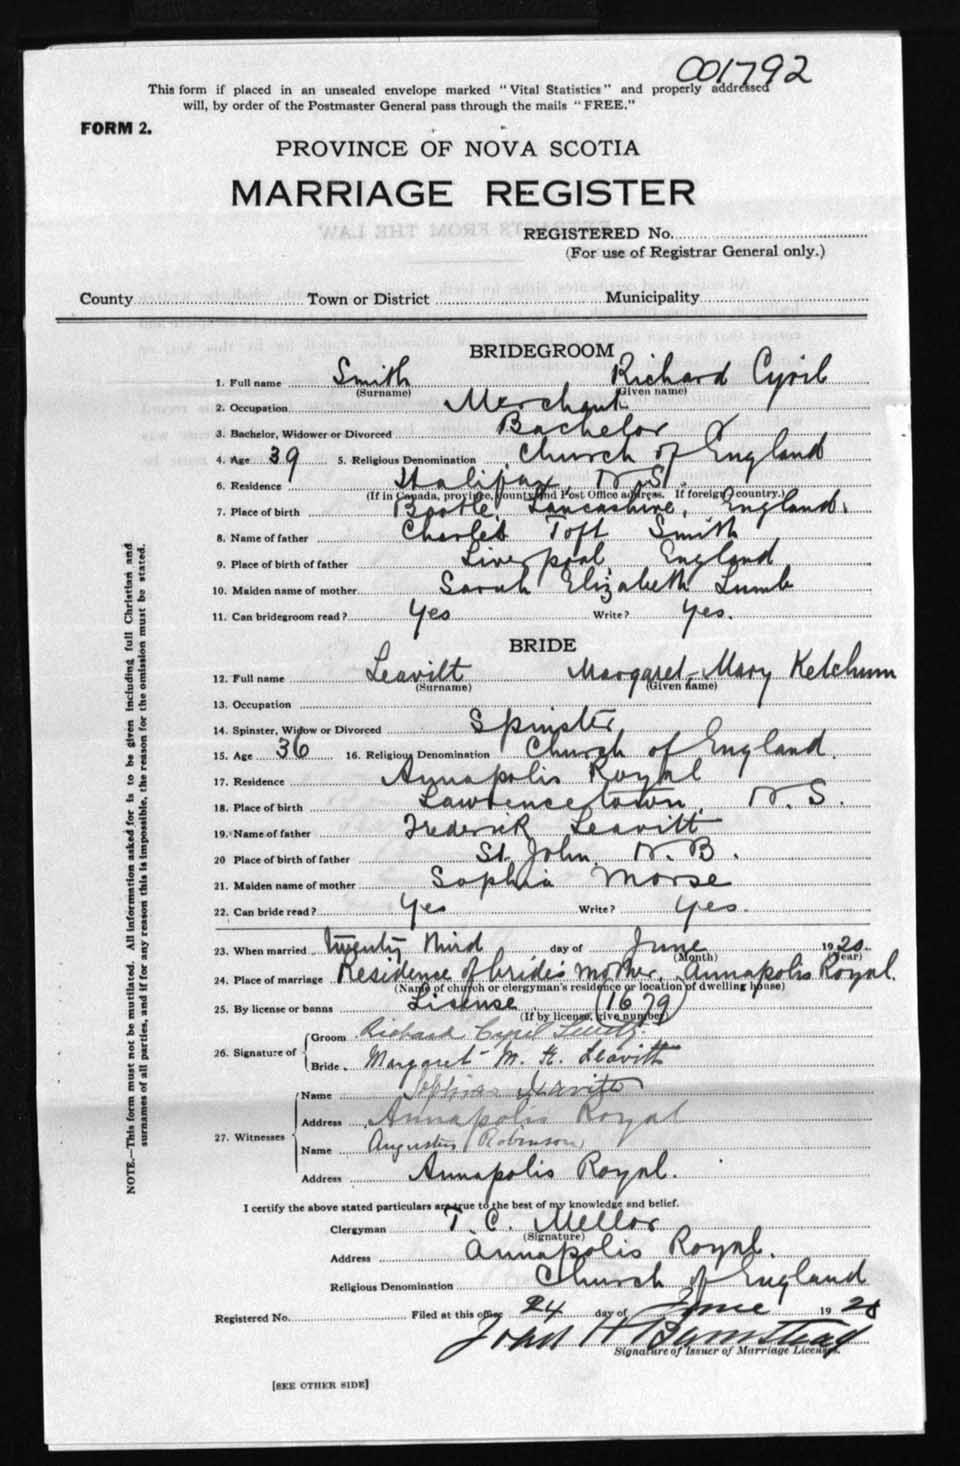 001792
This form if placed in an unsealed envelope marked "Vital Statistics" and properly addressed
will, by order of the Postmaster General pass through the mails "FREE."
FORM 2.
PROVINCE OF NOVA SCOTIA
MARRIAGE REGISTER
REGISTERED No.
(For use of Registrar General only.)
County Town or District Municipality
BRIDEGROOM
1. Full name Smith Richard Cyril
(Surname) (Given name)
2. Occupation Merchant
3. Bachelor, Widower or Divorced Bachelor
4. Age 39 5. Religious Denomination Church of England
6. Residence Halifax, N.S.
(If in Canada, province, county and Post Office address. If foreign country.)
7. Place of birth Bootle, Lancashire, England.
8. Name of father Charles Toft Smith
9. Place of birth of father Liverpool England
10. Maiden name of mother Sarah Elizabeth Lumb
11. Can bridegroom read? Yes Write? Yes.
BRIDE
12. Full name Leavitt Margaret Mary Ketchum
(Surname) (Given name)
13. Occupation
14. Spinster, Widow or Divorced Spinster
15. Age 36 16. Religious Denomination Church of England.
17. Residence Annapolis Royal
18. Place of birth Lawrencetown, N.S.
19. Name of father Frederick Leavitt
20 Place of birth of father St. John, N.B.
21. Maiden name of mother Sophia Morse
22. Can bride read? Yes Write? Yes.
23. When married twenty third day of June 1920
(Month) (Year)
24. Place of marriage Residence of bride's mother, Annapolis Royal.
(Name of church or clergyman's residence or location of dwelling house)
25. By license or banns License (1679)
(If by license, give number)
26. Signature of Groom Richard Cyril Smith
Bride Margaret M. K. Leavitt
27. Witnesses Name Sophia Leavitt
Address Annapolis Royal
Name Augustus Robinson
Address Annapolis Royal.
I certify the above stated particulars are true to the best of my knowledge and belief.
Clergyman T. C. Mellor
(Signature)
Address Annapolis Royal.
Religious Denomination Church of England
Registered No. Filed at this office 24 day of June 1920
Signature of Issuer of Marriage Licenses.
[SEE OTHER SIDE]
NOTE.—This form must not be mutilated. All information asked for is to be given including full Christian and
surnames of all parties, and if for any reason this is impossible, the reason for the omission must be stated.